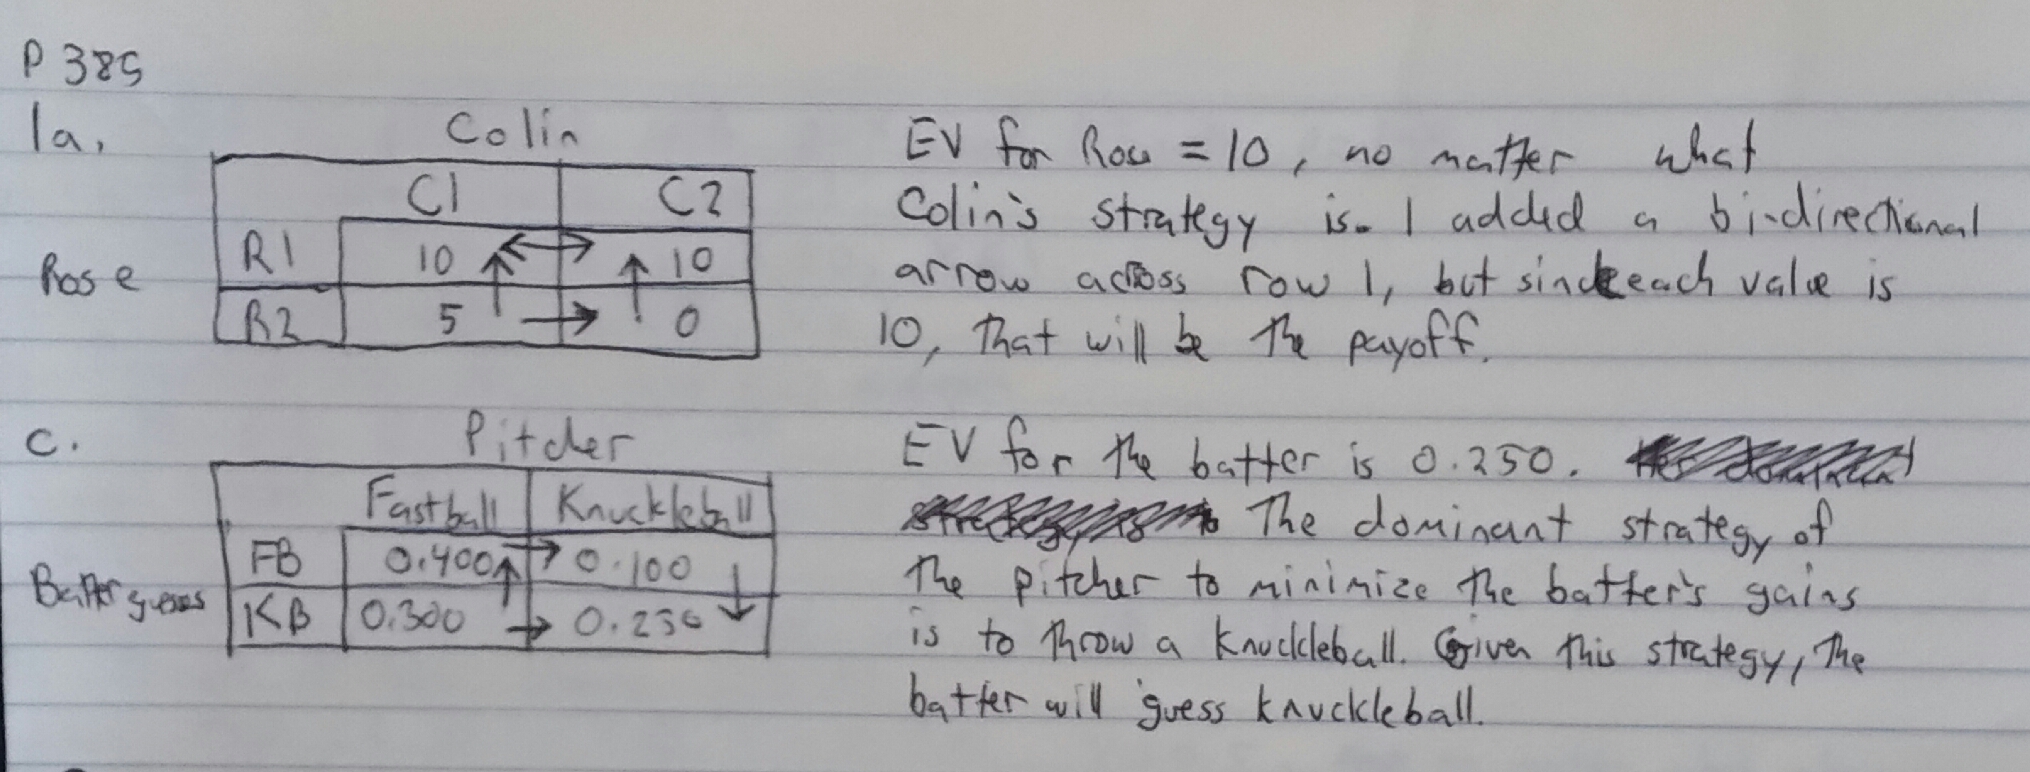 P 385
1a.
Colin
C1 C2
Rose
R1 10 10
R2 5 0
EV for Row = 10, no matter what
Colin's strategy is. I added a bi-directional
arrow across row 1, but since each value is
10, that will be the payoff.
c.
Pitcher
Fastball Knuckleball
Batter guesses
FB 0.400 0.100
KB 0.300 0.250
EV for the batter is 0.250.
The dominant strategy of
the pitcher to minimize the batter's gains
is to throw a knuckleball. Given this strategy, the
batter will guess knuckleball.